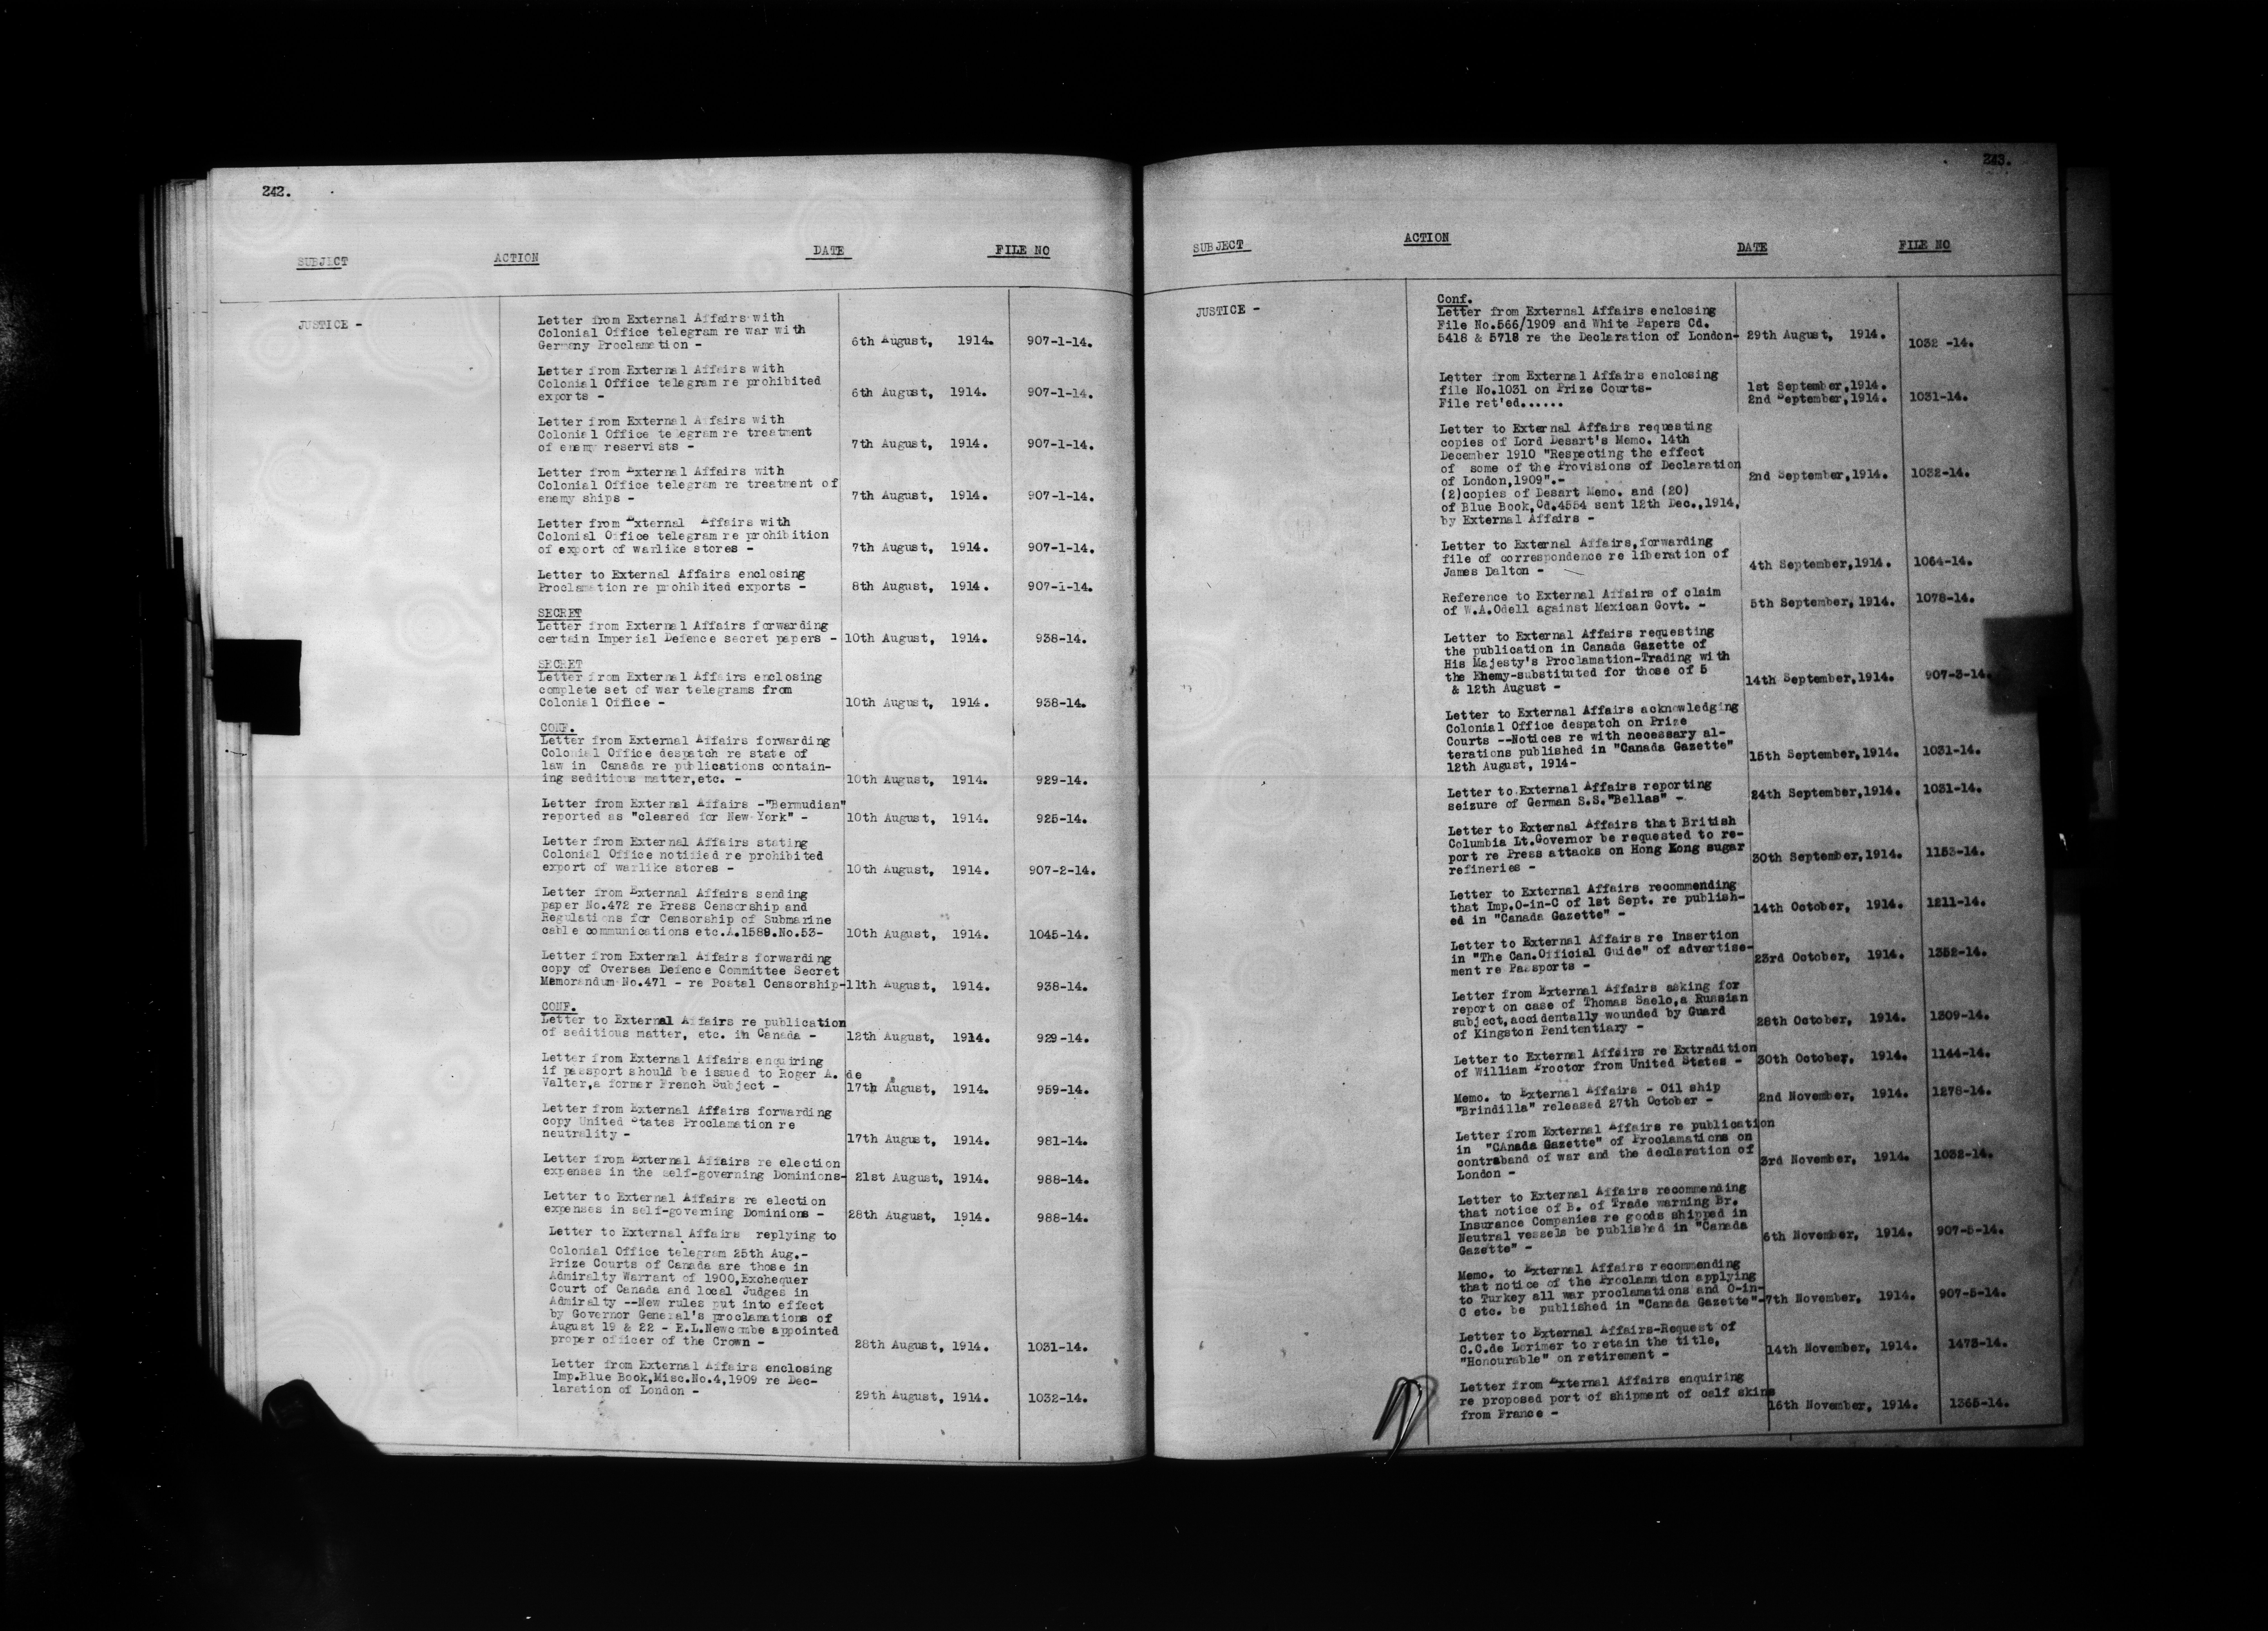 242.
SUBJECT ACTION DATE FILE NO
JUSTICE -
Letter from External Affairs with
Colonial Office telegram re war with
Germany Proclamation - 6th August, 1914. 907-1-14.
Letter from External Affairs with
Colonial Office telegram re prohibited
exports - 6th August, 1914. 907-1-14.
Letter from External Affairs with
Colonial Office telegram re treatment
of enemy reservists - 7th August, 1914. 907-1-14.
Letter from External Affairs with
Colonial Office telegram re treatment of
enemy ships - 7th August, 1914. 907-1-14.
Letter from External Affairs with
Colonial Office telegram re prohibition
of export of warlike stores - 7th August, 1914. 907-1-14.
Letter to External Affairs enclosing
Proclamation re prohibited exports - 8th August, 1914. 907-1-14.
SECRET
Letter from External Affairs forwarding
certain Imperial Defence secret papers - 10th August, 1914. 938-14.
SECRET
Letter from External Affairs enclosing
complete set of war telegrams from
Colonial Office - 10th August, 1914. 938-14.
CONF.
Letter from External Affairs forwarding
Colonial Office despatch re state of
law in Canada re publications contain-
ing seditious matter,etc. - 10th August, 1914. 929-14.
Letter from External Affairs -"Bermudian"
reported as "cleared for New York" - 10th August, 1914. 925-14.
Letter from External Affairs stating
Colonial Office notified re prohibited
export of warlike stores - 10th August, 1914. 907-2-14.
Letter from External Affairs sending
paper No.472 re Press Censorship and
Regulations for Censorship of Submarine
cable communications etc.A.1589.No.53- 10th August, 1914. 1045-14.
Letter from External Affairs forwarding
copy of Oversea Defence Committee Secret
Memorandum No.471 - re Postal Censorship- 11th August, 1914. 938-14.
CONF.
Letter to External Affairs re publication
of seditious matter, etc. in Canada - 12th August, 1914. 929-14.
Letter from External Affairs enquiring
if passport should be issued to Roger A. de
Valter,a former French Subject - 17th August, 1914. 959-14.
Letter from External Affairs forwarding
copy United States Proclamation re
neutrality - 17th August, 1914. 981-14.
Letter from External Affairs re election
expenses in the self-governing Dominions- 21st August, 1914. 988-14.
Letter to External Affairs re election
expenses in self-governing Dominions - 28th August, 1914. 988-14.
Letter to External Affairs replying to
Colonial Office telegram 25th Aug.-
Prize Courts of Canada are those in
Admiralty Warrant of 1900,Exchequer
Court of Canada and local Judges in
Admiralty --New rules put into effect
by Governor General's proclamations of
August 19 & 22 - E.L.Newcombe appointed
proper officer of the Crown - 28th August, 1914. 1031-14.
Letter from External Affairs enclosing
Imp.Blue Book,Misc.No.4,1909 re Dec-
laration of London - 29th August, 1914. 1032-14.
243.
SUBJECT ACTION DATE FILE NO
JUSTICE -
Conf.
Letter from External Affairs enclosing
File No.566/1909 and White Papers Cd.
5418 & 5718 re the Declaration of London- 29th August, 1914. 1032 -14.
Letter from External Affairs enclosing
file No.1031 on Prize Courts- 1st September,1914.
File ret'ed...... 2nd September,1914. 1031-14.
Letter to External Affairs requesting
copies of Lord Desart's Memo. 14th
December 1910 "Respecting the effect
of some of the Provisions of Declaration
of London,1909".- 2nd September,1914. 1032-14.
(2)copies of Desart Memo. and (20)
of Blue Book,Cd.4554 sent 12th Dec.,1914,
by External Affairs -
Letter to External Affairs,forwarding
file of correspondence re liberation of
James Dalton - 4th September,1914. 1064-14.
Reference to External Affairs of claim
of W.A.Odell against Mexican Govt. - 5th September,1914. 1078-14.
Letter to External Affairs requesting
the publication in Canada Gazette of
His Majesty's Proclamation-Trading with
the Enemy-substituted for those of 5
& 12th August - 14th September,1914. 907-3-14.
Letter to External Affairs acknowledging
Colonial Office despatch on Prize
Courts --Notices re with necessary al-
terations published in "Canada Gazette"
12th August, 1914- 15th September,1914. 1031-14.
Letter to External Affairs reporting
seizure of German S.S."Bellas" - 24th September,1914. 1031-14.
Letter to External Affairs that British
Columbia Lt.Governor be requested to re-
port re Press attacks on Hong Kong sugar
refineries - 30th September,1914. 1153-14.
Letter to External Affairs recommending
that Imp.O-in-C of 1st Sept. re publish-
ed in "Canada Gazette" - 14th October, 1914. 1211-14.
Letter to External Affairs re Insertion
in "The Can.Official Guide" of advertise-
ment re Passports - 23rd October, 1914. 1352-14.
Letter from External Affairs asking for
report on case of Thomas Saelo,a Russian
subject,accidentally wounded by Guard
of Kingston Penitentiary - 28th October, 1914. 1309-14.
Letter to External Affairs re Extradition
of William Proctor from United States - 30th October, 1914. 1144-14.
Memo. to External Affairs - Oil ship
"Brindilla" released 27th October - 2nd November, 1914. 1278-14.
Letter from External Affairs re publication
in "CAnada Gazette" of Proclamations on
contraband of war and the declaration of
London - 3rd November, 1914. 1032-14.
Letter to External Affairs recommending
that notice of B. of Trade warning Br.
Insurance Companies re goods shipped in
Neutral vessels be published in "Canada
Gazette" - 6th November, 1914. 907-5-14.
Memo. to External Affairs recommending
that notice of the Proclamation applying
to Turkey all war proclamations and O-in-
C etc. be published in "Canada Gazette"- 7th November, 1914. 907-5-14.
Letter to External Affairs-Request of
C.C.de Lorimer to retain the title,
"Honourable" on retirement - 14th November, 1914. 1473-14.
Letter from External Affairs enquiring
re proposed port of shipment of calf skins
from France - 16th November, 1914. 1365-14.